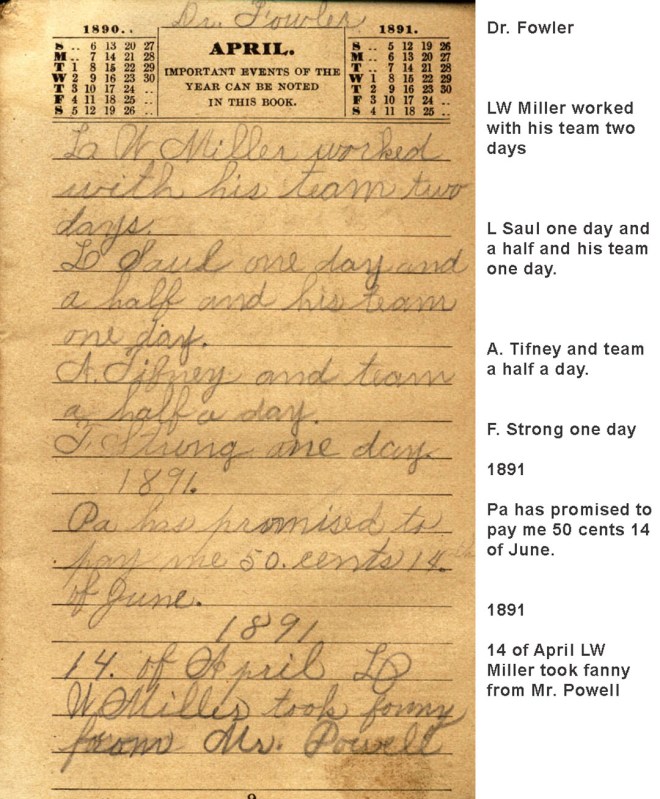 Dr. Fowler
1890..
S .. 6 13 20 27
M .. 7 14 21 28
T 1 8 15 22 29
W 2 9 16 23 30
T 3 10 17 24 ..
F 4 11 18 25 ..
S 5 12 19 26 ..
APRIL.
IMPORTANT EVENTS OF THE
YEAR CAN BE NOTED
IN THIS BOOK.
1891.
S .. 5 12 19 26
M .. 6 13 20 27
T .. 7 14 21 28
W 1 8 15 22 29
T 2 9 16 23 30
F 3 10 17 24 ..
S 4 11 18 25 ..
L W Miller worked
with his team two
days.
L Saul one day and
a half and his team
one day.
A. Tifney and team
a half a day.
F. Strong one day.
1891.
Pa has promised to
pay me 50. cents 14.th
of June.
1891
14. of April L
W Miller took fanny
from Mr. Powell
9
Dr. Fowler
LW Miller worked
with his team two
days
L Saul one day and
a half and his team
one day.
A. Tifney and team
a half a day.
F. Strong one day
1891
Pa has promised to
pay me 50 cents 14
of June.
1891
14 of April LW
Miller took fanny
from Mr. Powell